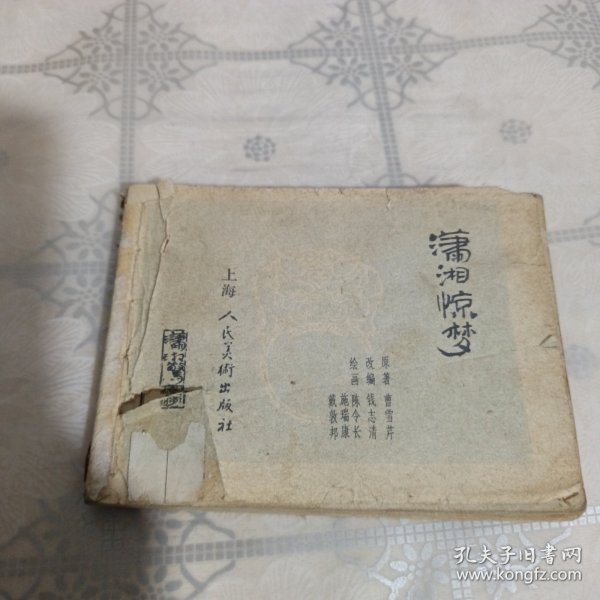 潇湘惊梦
原著 曹雪芹
改编 钱志清
绘画 陈令长
施瑞康
戴敦邦
上海 人民美術出版社
孔夫子旧书网
www.kongfz.com